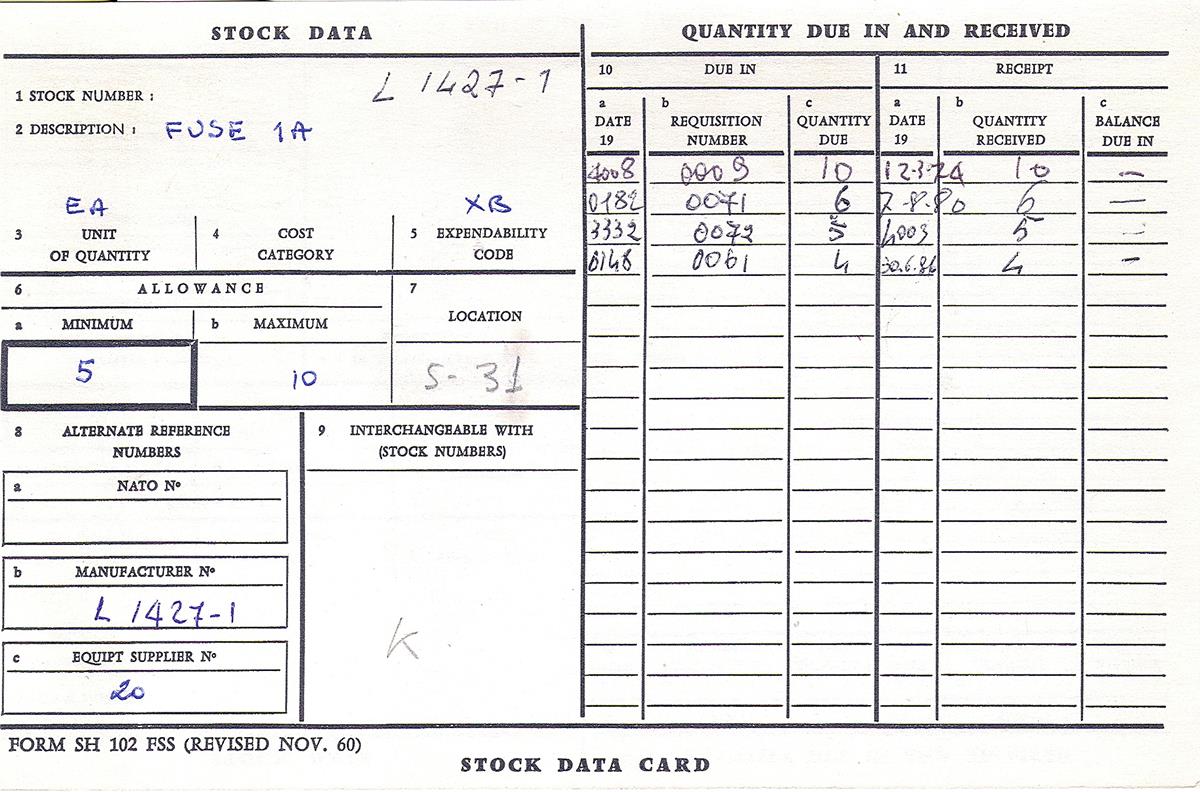 STOCK DATA
1 STOCK NUMBER : L 1427-1
2 DESCRIPTION : FUSE 1A
EA XB
3 UNIT OF QUANTITY
4 COST CATEGORY
5 EXPENDABILITY CODE
6 ALLOWANCE
7 LOCATION
a MINIMUM
b MAXIMUM
5 10 5-31
8 ALTERNATE REFERENCE NUMBERS
9 INTERCHANGEABLE WITH (STOCK NUMBERS)
a NATO Nº
b MANUFACTURER Nº
L 1427-1
K
c EQUIPT SUPPLIER Nº
20
QUANTITY DUE IN AND RECEIVED
10 DUE IN 11 RECEIPT
a DATE 19
b REQUISITION NUMBER
c QUANTITY DUE
a DATE 19
b QUANTITY RECEIVED
c BALANCE DUE IN
4008 0009 10 12-3-74 10 -
0182 0071 6 7-8-80 6 -
3332 0072 5 4003 5 -
0148 0061 4 30.6.86 4 -
FORM SH 102 FSS (REVISED NOV. 60)
STOCK DATA CARD